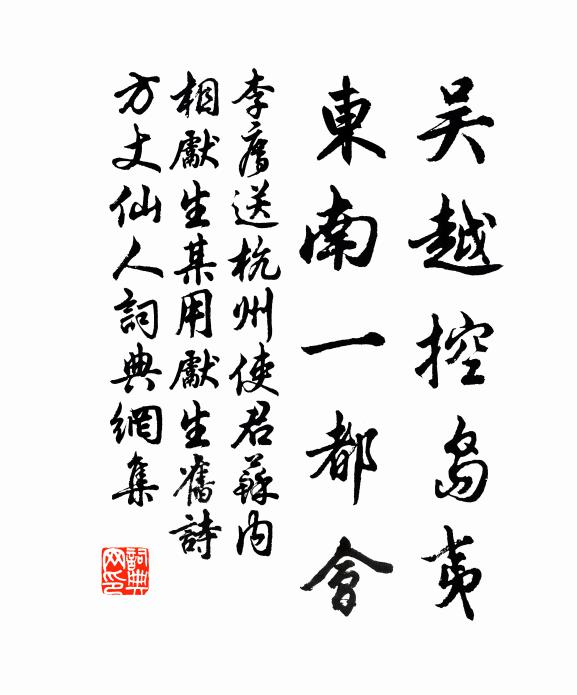 吴越控岛夷
東南一都會
李廌送杭州使君蘇内
相獻生某用獻生舊詩
方丈仙人詞典網集
詞典网印